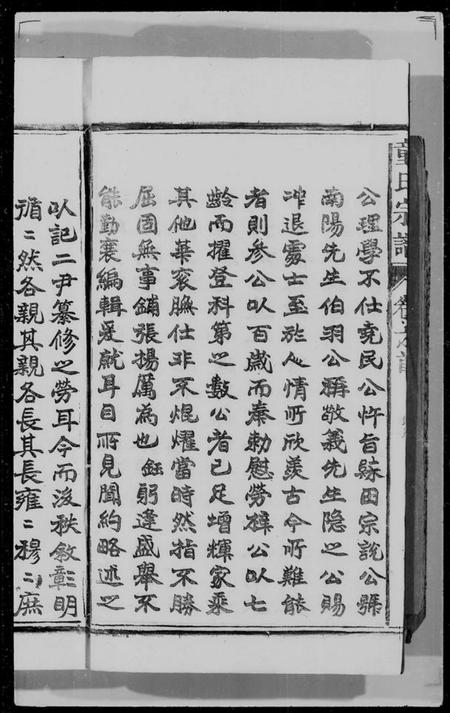 童氏宗譜 卷之首
公理學不仕堯民公忤旨歸田宗說公號
南陽先生伯羽公稱敬義先生隐之公賜
冲退處士至於人情所欣羨古今所難能
者則參公以百歲而奉勅慰勞梓公以七
齡而擢登科第之數公者已足增輝家乘
其他華衮膴仕非不焜燿當時然指不勝
屈固無事鋪張揚厲為也 鈺躬逢盛舉不
能勤襄編輯爰就耳目所見聞約略述之
以記二尹纂修之勞耳今而後秩敘彰明
循〻然各親其親各長其長雍〻穆〻庶